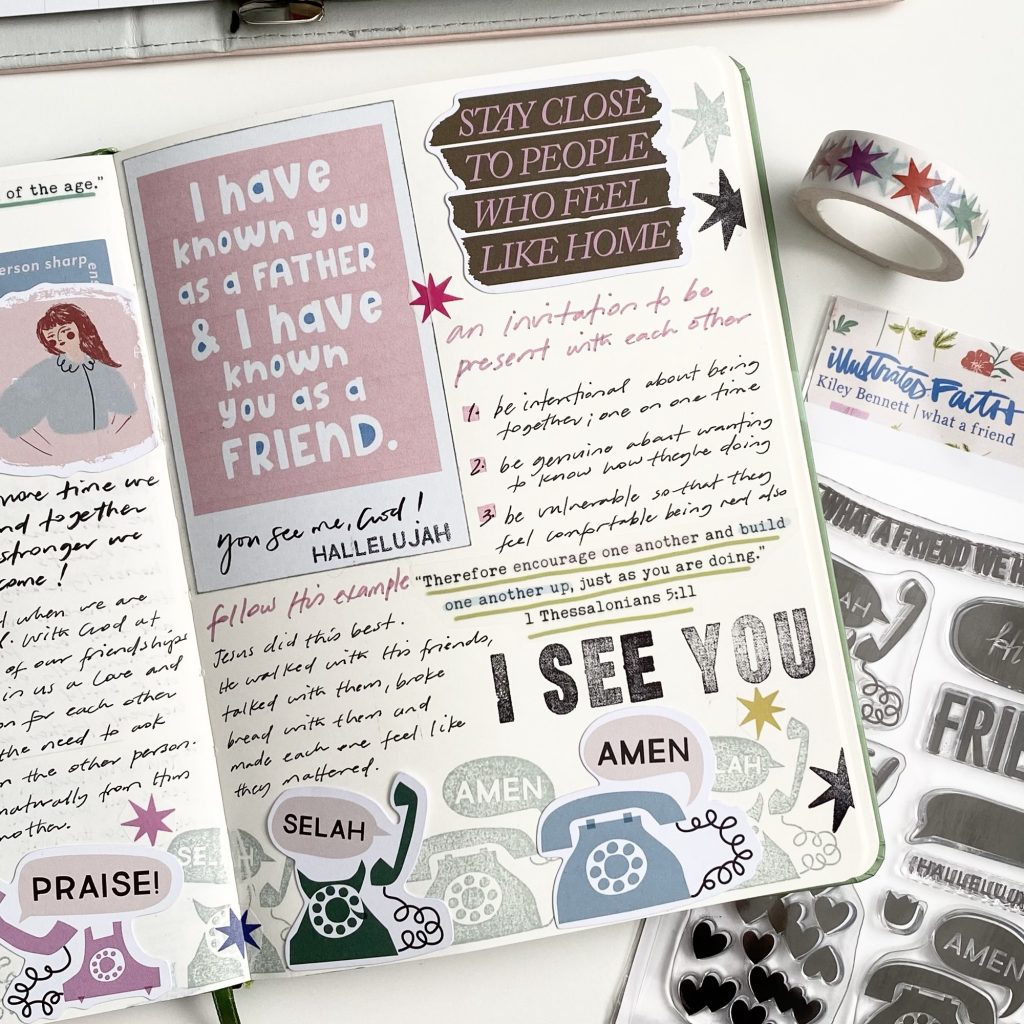 of the age."
erson sharpens
more time we
nd together
stronger we
come!
d when we are
. with God at
of our friendships
in us a love and
on for each other
the need to ask
n the other person.
naturally from this
nother.
PRAISE!
I have
known you
as a FATHER
& I have
known
you as a
FRIEND.
you see me, God!
HALLELUJAH
follow His example
Jesus did this best.
He walked with His friends,
talked with them, broke
bread with them and
made each one feel like
they mattered.
SELAH
SELAH
STAY CLOSE
TO PEOPLE
WHO FEEL
LIKE HOME
an invitation to be
present with each other
1. be intentional about being
together; one on one time
2. be genuine about wanting
to know how they're doing
3. be vulnerable so that they
feel comfortable being real also
"Therefore encourage one another and build
one another up, just as you are doing."
1 Thessalonians 5:11
I SEE YOU
AMEN
AMEN
LAH
illustrated Faith
Kiley Bennett | what a friend
WHAT A FRIEND WE H
AH
FRIE
HALLELUJA
AMEN